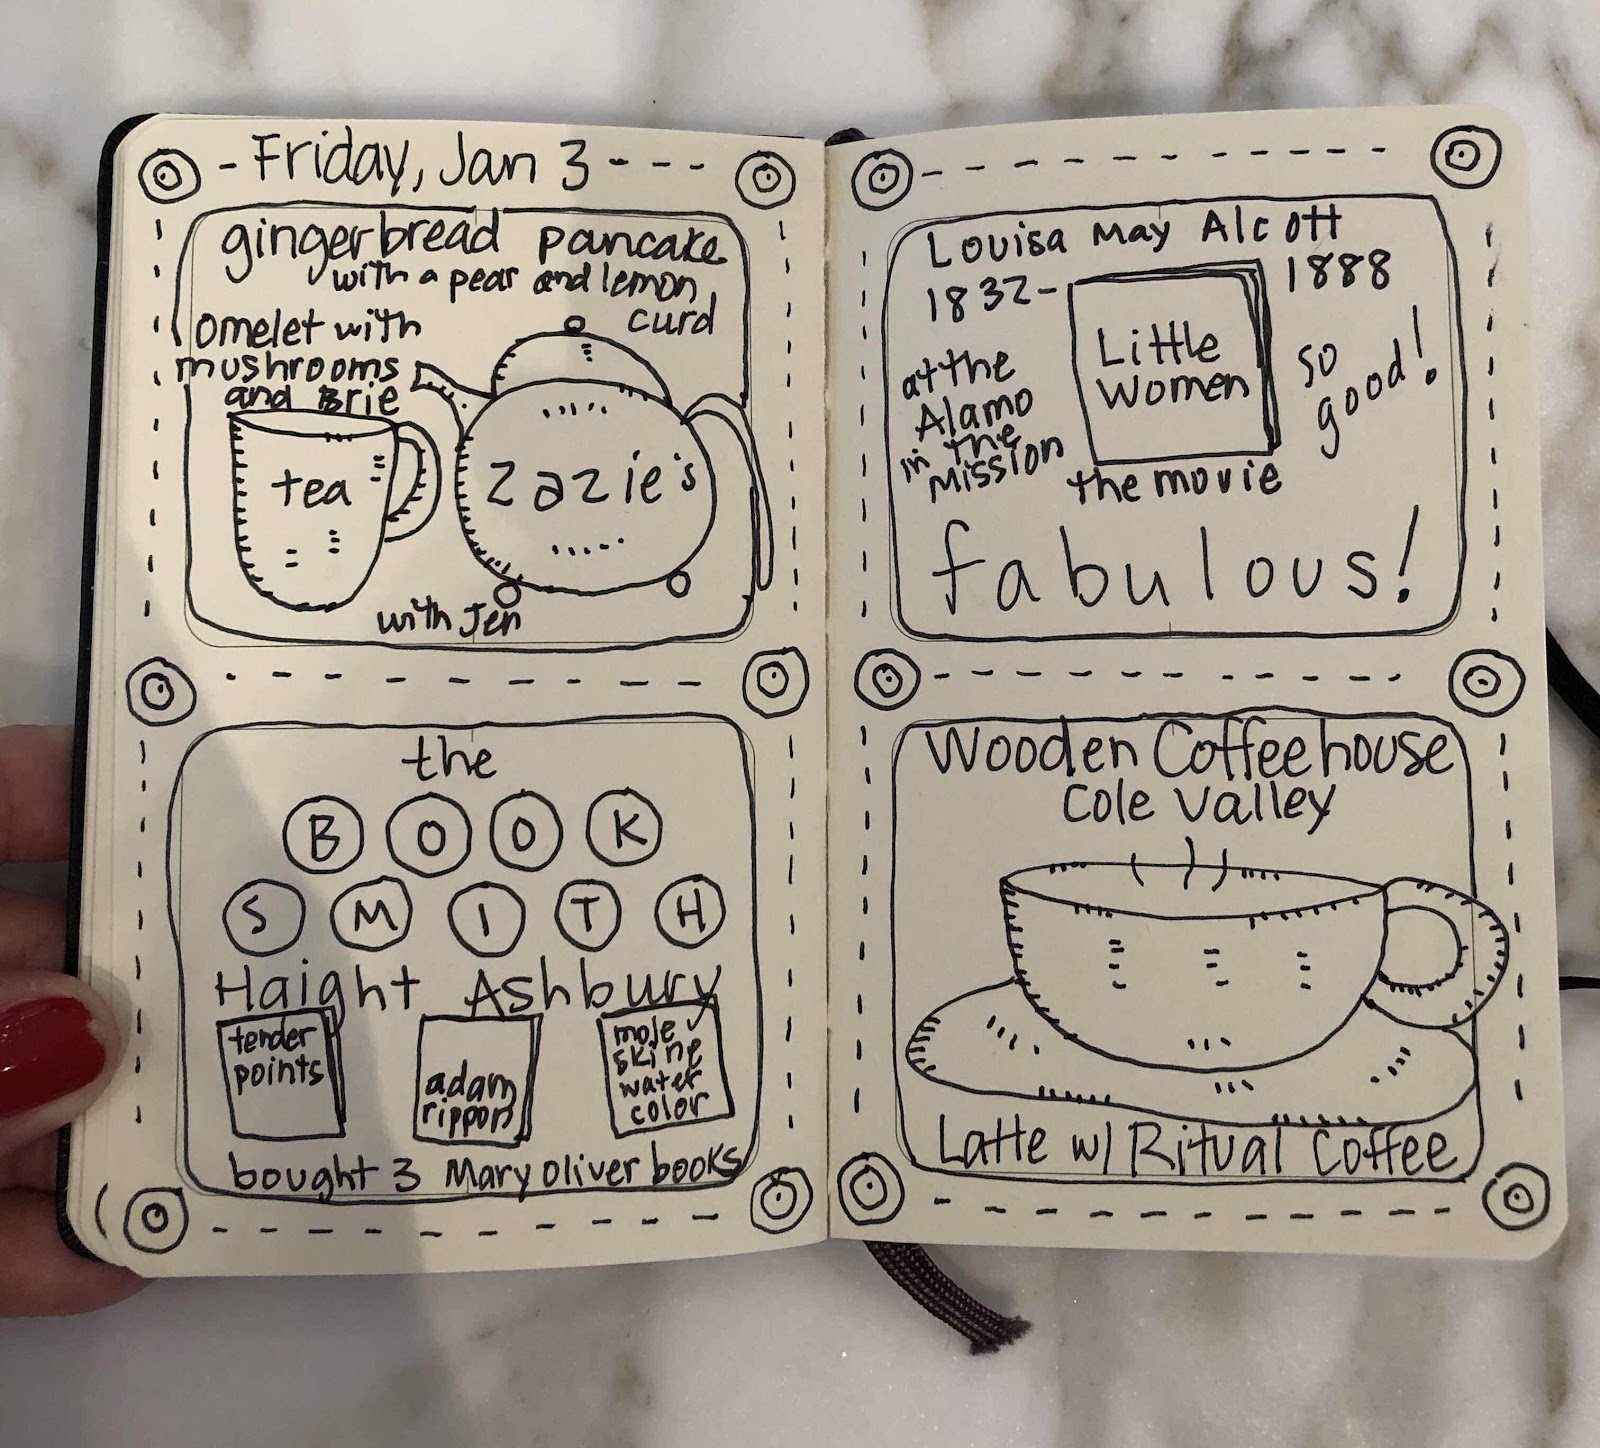 Friday, Jan 3
gingerbread pancake
with a pear and lemon
curd
omelet with
mushrooms
and Brie
tea
zazie's
with Jen
the
BOOK
SMITH
Haight Ashbury
tender
points
adam
rippon
mole
skine
water
color
bought 3 Mary Oliver books
Louisa May Alcott
1832-1888
at the
Alamo
in the
Mission
Little
Women
so
good!
the movie
fabulous!
Wooden Coffeehouse
Cole Valley
Latte w/ Ritual Coffee